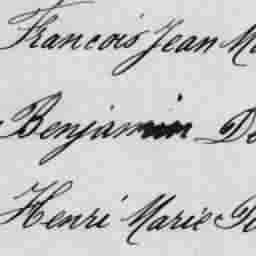 Francois Jean M
Benjamin D
Henri Marie